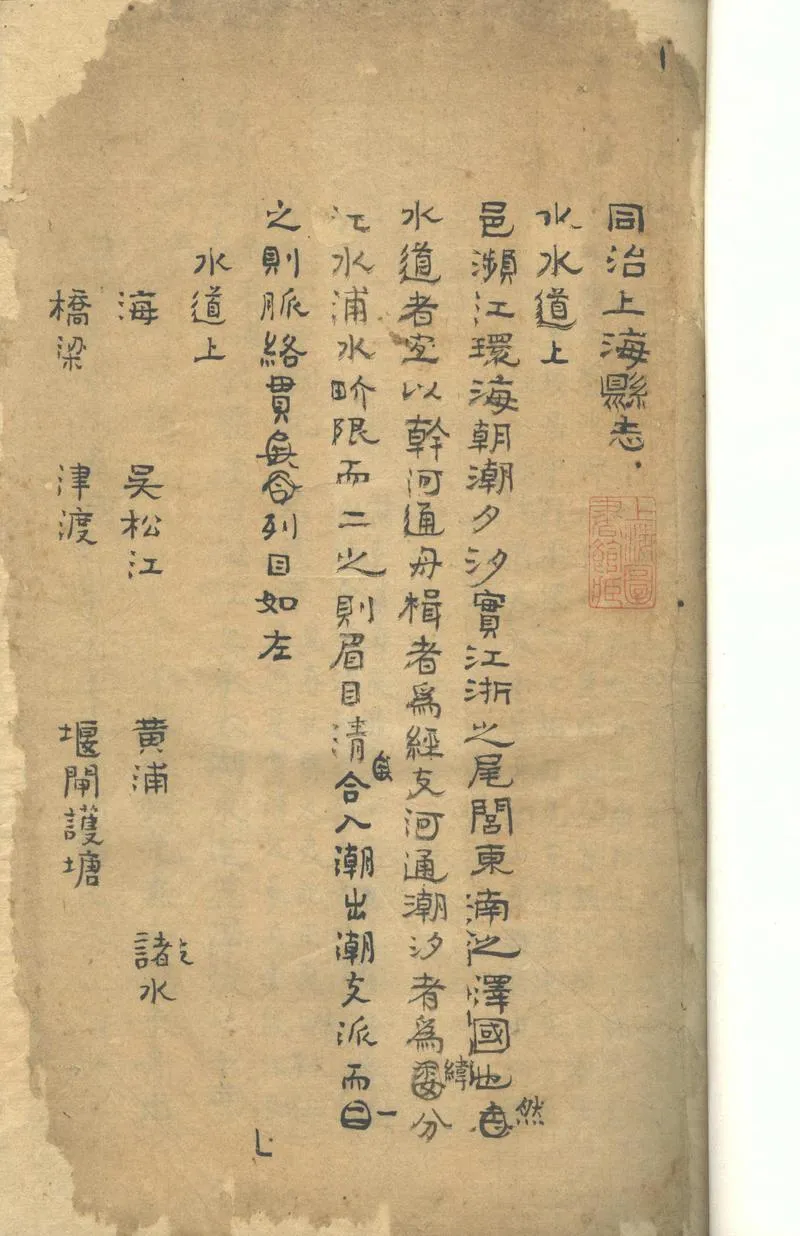 同治上海縣志
水水道上
邑瀕江環海朝潮夕汐實江浙之尾閭東南之澤國也然
水道者宜以幹河通舟楫者為經支河通潮汐者為緯分
江水浦水畍限而二之則眉目清合入潮出潮支派而一
之則脈絡貫列目如左
水道上
海 吳松江 黄浦 諸水
橋梁 津渡 堰閘護塘
上海圖書館藏